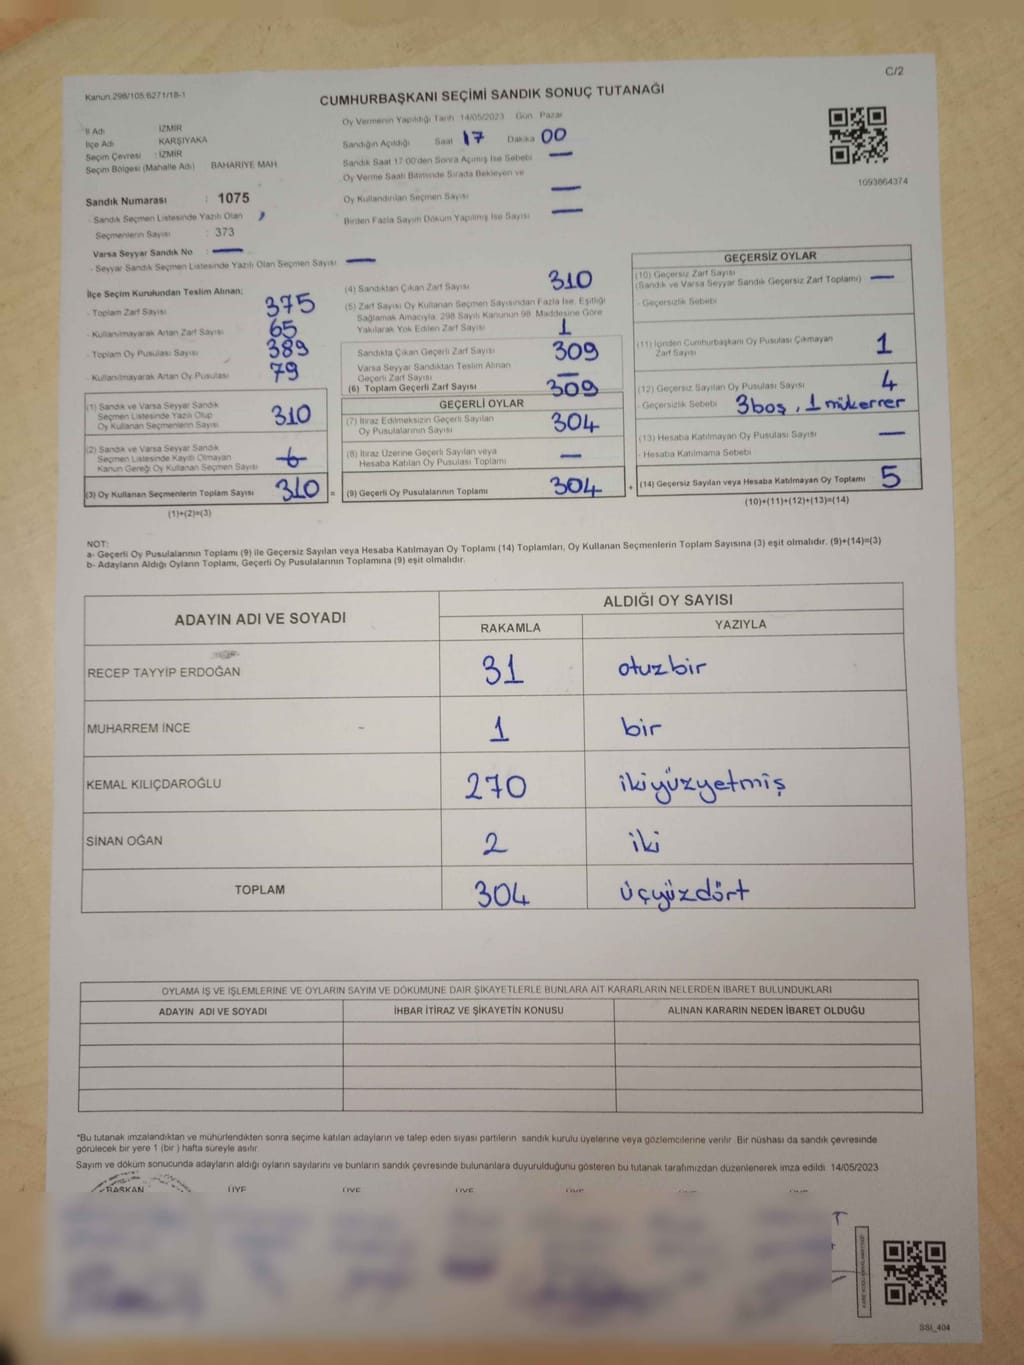 C/2
Kanun 298/105,6271/18-1
CUMHURBAŞKANI SEÇİMİ SANDIK SONUÇ TUTANAĞI
1093864374
İl Adı İZMİR
İlçe Adı KARŞIYAKA
Seçim Çevresi : İZMİR
Seçim Bölgesi (Mahalle Adı) BAHARİYE MAH
Sandık Numarası : 1075
- Sandık Seçmen Listesinde Yazılı Olan
Seçmenlerin Sayısı : 373
Varsa Seyyar Sandık No : —
- Seyyar Sandık Seçmen Listesinde Yazılı Olan Seçmen Sayısı —
Oy Vermenin Yapıldığı Tarih 14/05/2023 Gün Pazar
Sandığın Açıldığı Saat 17 Dakika 00
Sandık Saat 17.00'den Sonra Açılmış İse Sebebi —
Oy Verme Saati Bitiminde Sırada Bekleyen ve
Oy Kullandırılan Seçmen Sayısı —
Birden Fazla Sayım Döküm Yapılmış İse Sayısı —
İlçe Seçim Kurulundan Teslim Alınan;
- Toplam Zarf Sayısı 375
- Kullanılmayarak Artan Zarf Sayısı 65
- Toplam Oy Pusulası Sayısı 389
- Kullanılmayarak Artan Oy Pusulası 79
(1) Sandık ve Varsa Seyyar Sandık
Seçmen Listesinde Yazılı Olup
Oy Kullanan Seçmenlerin Sayısı 310
(2) Sandık ve Varsa Seyyar Sandık
Seçmen Listesinde Kayıtlı Olmayan
Kanun Gereği Oy Kullanan Seçmen Sayısı
(3) Oy Kullanan Seçmenlerin Toplam Sayısı 310 =
(1)+(2)=(3)
(4) Sandıktan Çıkan Zarf Sayısı 310
(5) Zarf Sayısı Oy Kullanan Seçmen Sayısından Fazla İse, Eşitliği
Sağlamak Amacıyla, 298 Sayılı Kanunun 98. Maddesine Göre
Yakılarak Yok Edilen Zarf Sayısı 1
Sandıkta Çıkan Geçerli Zarf Sayısı 309
Varsa Seyyar Sandıktan Teslim Alınan
Geçerli Zarf Sayısı —
(6) Toplam Geçerli Zarf Sayısı 309
GEÇERLİ OYLAR
(7) İtiraz Edilmeksizin Geçerli Sayılan
Oy Pusulalarının Sayısı 304
(8) İtiraz Üzerine Geçerli Sayılan veya
Hesaba Katılan Oy Pusulası Toplamı —
(9) Geçerli Oy Pusulalarının Toplamı 304 +
GEÇERSİZ OYLAR
(10) Geçersiz Zarf Sayısı
(Sandık ve Varsa Seyyar Sandık Geçersiz Zarf Toplamı) —
- Geçersizlik Sebebi
(11) İçinden Cumhurbaşkanı Oy Pusulası Çıkmayan
Zarf Sayısı 1
(12) Geçersiz Sayılan Oy Pusulası Sayısı 4
- Geçersizlik Sebebi 3 boş, 1 mükerrer
(13) Hesaba Katılmayan Oy Pusulası Sayısı —
- Hesaba Katılmama Sebebi
(14) Geçersiz Sayılan veya Hesaba Katılmayan Oy Toplamı 5
(10)+(11)+(12)+(13)=(14)
NOT:
a- Geçerli Oy Pusulalarının Toplamı (9) ile Geçersiz Sayılan veya Hesaba Katılmayan Oy Toplamı (14) Toplamları, Oy Kullanan Seçmenlerin Toplam Sayısına (3) eşit olmalıdır. (9)+(14)=(3)
b- Adayların Aldığı Oyların Toplamı, Geçerli Oy Pusulalarının Toplamına (9) eşit olmalıdır.
ADAYIN ADI VE SOYADI ALDIĞI OY SAYISI
RAKAMLA YAZIYLA
RECEP TAYYİP ERDOĞAN 31 otuzbir
MUHARREM İNCE 1 bir
KEMAL KILIÇDAROĞLU 270 ikiyüzyetmiş
SİNAN OĞAN 2 iki
TOPLAM 304 üçyüzdört
OYLAMA İŞ VE İŞLEMLERİNE VE OYLARIN SAYIM VE DÖKÜMÜNE DAİR ŞİKAYETLERLE BUNLARA AİT KARARLARIN NELERDEN İBARET BULUNDUKLARI
ADAYIN ADI VE SOYADI İHBAR İTİRAZ VE ŞİKAYETİN KONUSU ALINAN KARARIN NEDEN İBARET OLDUĞU
*Bu tutanak imzalandıktan ve mühürlendikten sonra seçime katılan adayların ve talep eden siyasi partilerin sandık kurulu üyelerine veya gözlemcilerine verilir. Bir nüshası da sandık çevresinde
görülecek bir yere 1 (bir) hafta süreyle asılır.
Sayım ve döküm sonucunda adayların aldığı oyların sayılarını ve bunların sandık çevresinde bulunanlara duyurulduğunu gösteren bu tutanak tarafımızdan düzenlenerek imza edildi. 14/05/2023
BAŞKAN ÜYE ÜYE ÜYE ÜYE
SSİ_404